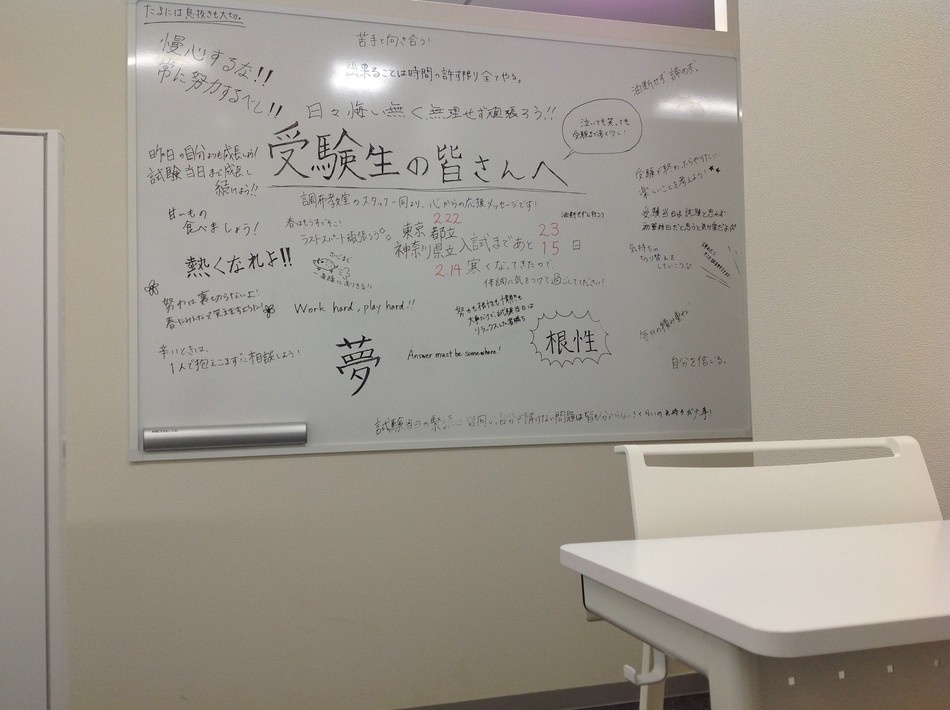 たまには息抜きも大切。
苦手と向き合う!
慢心するな!!
常に努力するべし!!
出来ることは時間の許す限り全てやる。
油断せず 諦めず。
日々悔い無く無理せず頑張ろう!!
泣いても笑っても
受験まであと少し!
受験生の皆さんへ
昨日の自分よりも成長しよう!
試験当日まで成長し
続けよう!!
調布教室のスタッフ一同より、心からの応援メッセージです!
受験が終わったらやりたい
楽しいことを考えよう!
甘いもの
食べましょう!
春はもうすぐそこ!
ラストスパート頑張ろう
2.22
東京都立
神奈川県立
2.14
入試まであと
23
15
日
受験当日は試験と思わず
気持ちの
切り替えを
していこう
熱くなれよ!!
寒くなってきたので、
体調に気をつけて過ごしてください!
努力は裏切らないよ!
Work hard, play hard!!
努力も根性も情熱も
大事だけど、試験当日は
リラックスした者勝ち
根性
夢
Answer must be somewhere!
辛いときは、
1人で抱えこまずに相談しよう!
自分を信じる。
試験当日の緊張は皆同じ。自分が解けない問題は皆も分からない